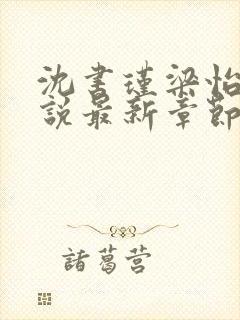 沈书瑾梁怡
說最新章節
諸葛营